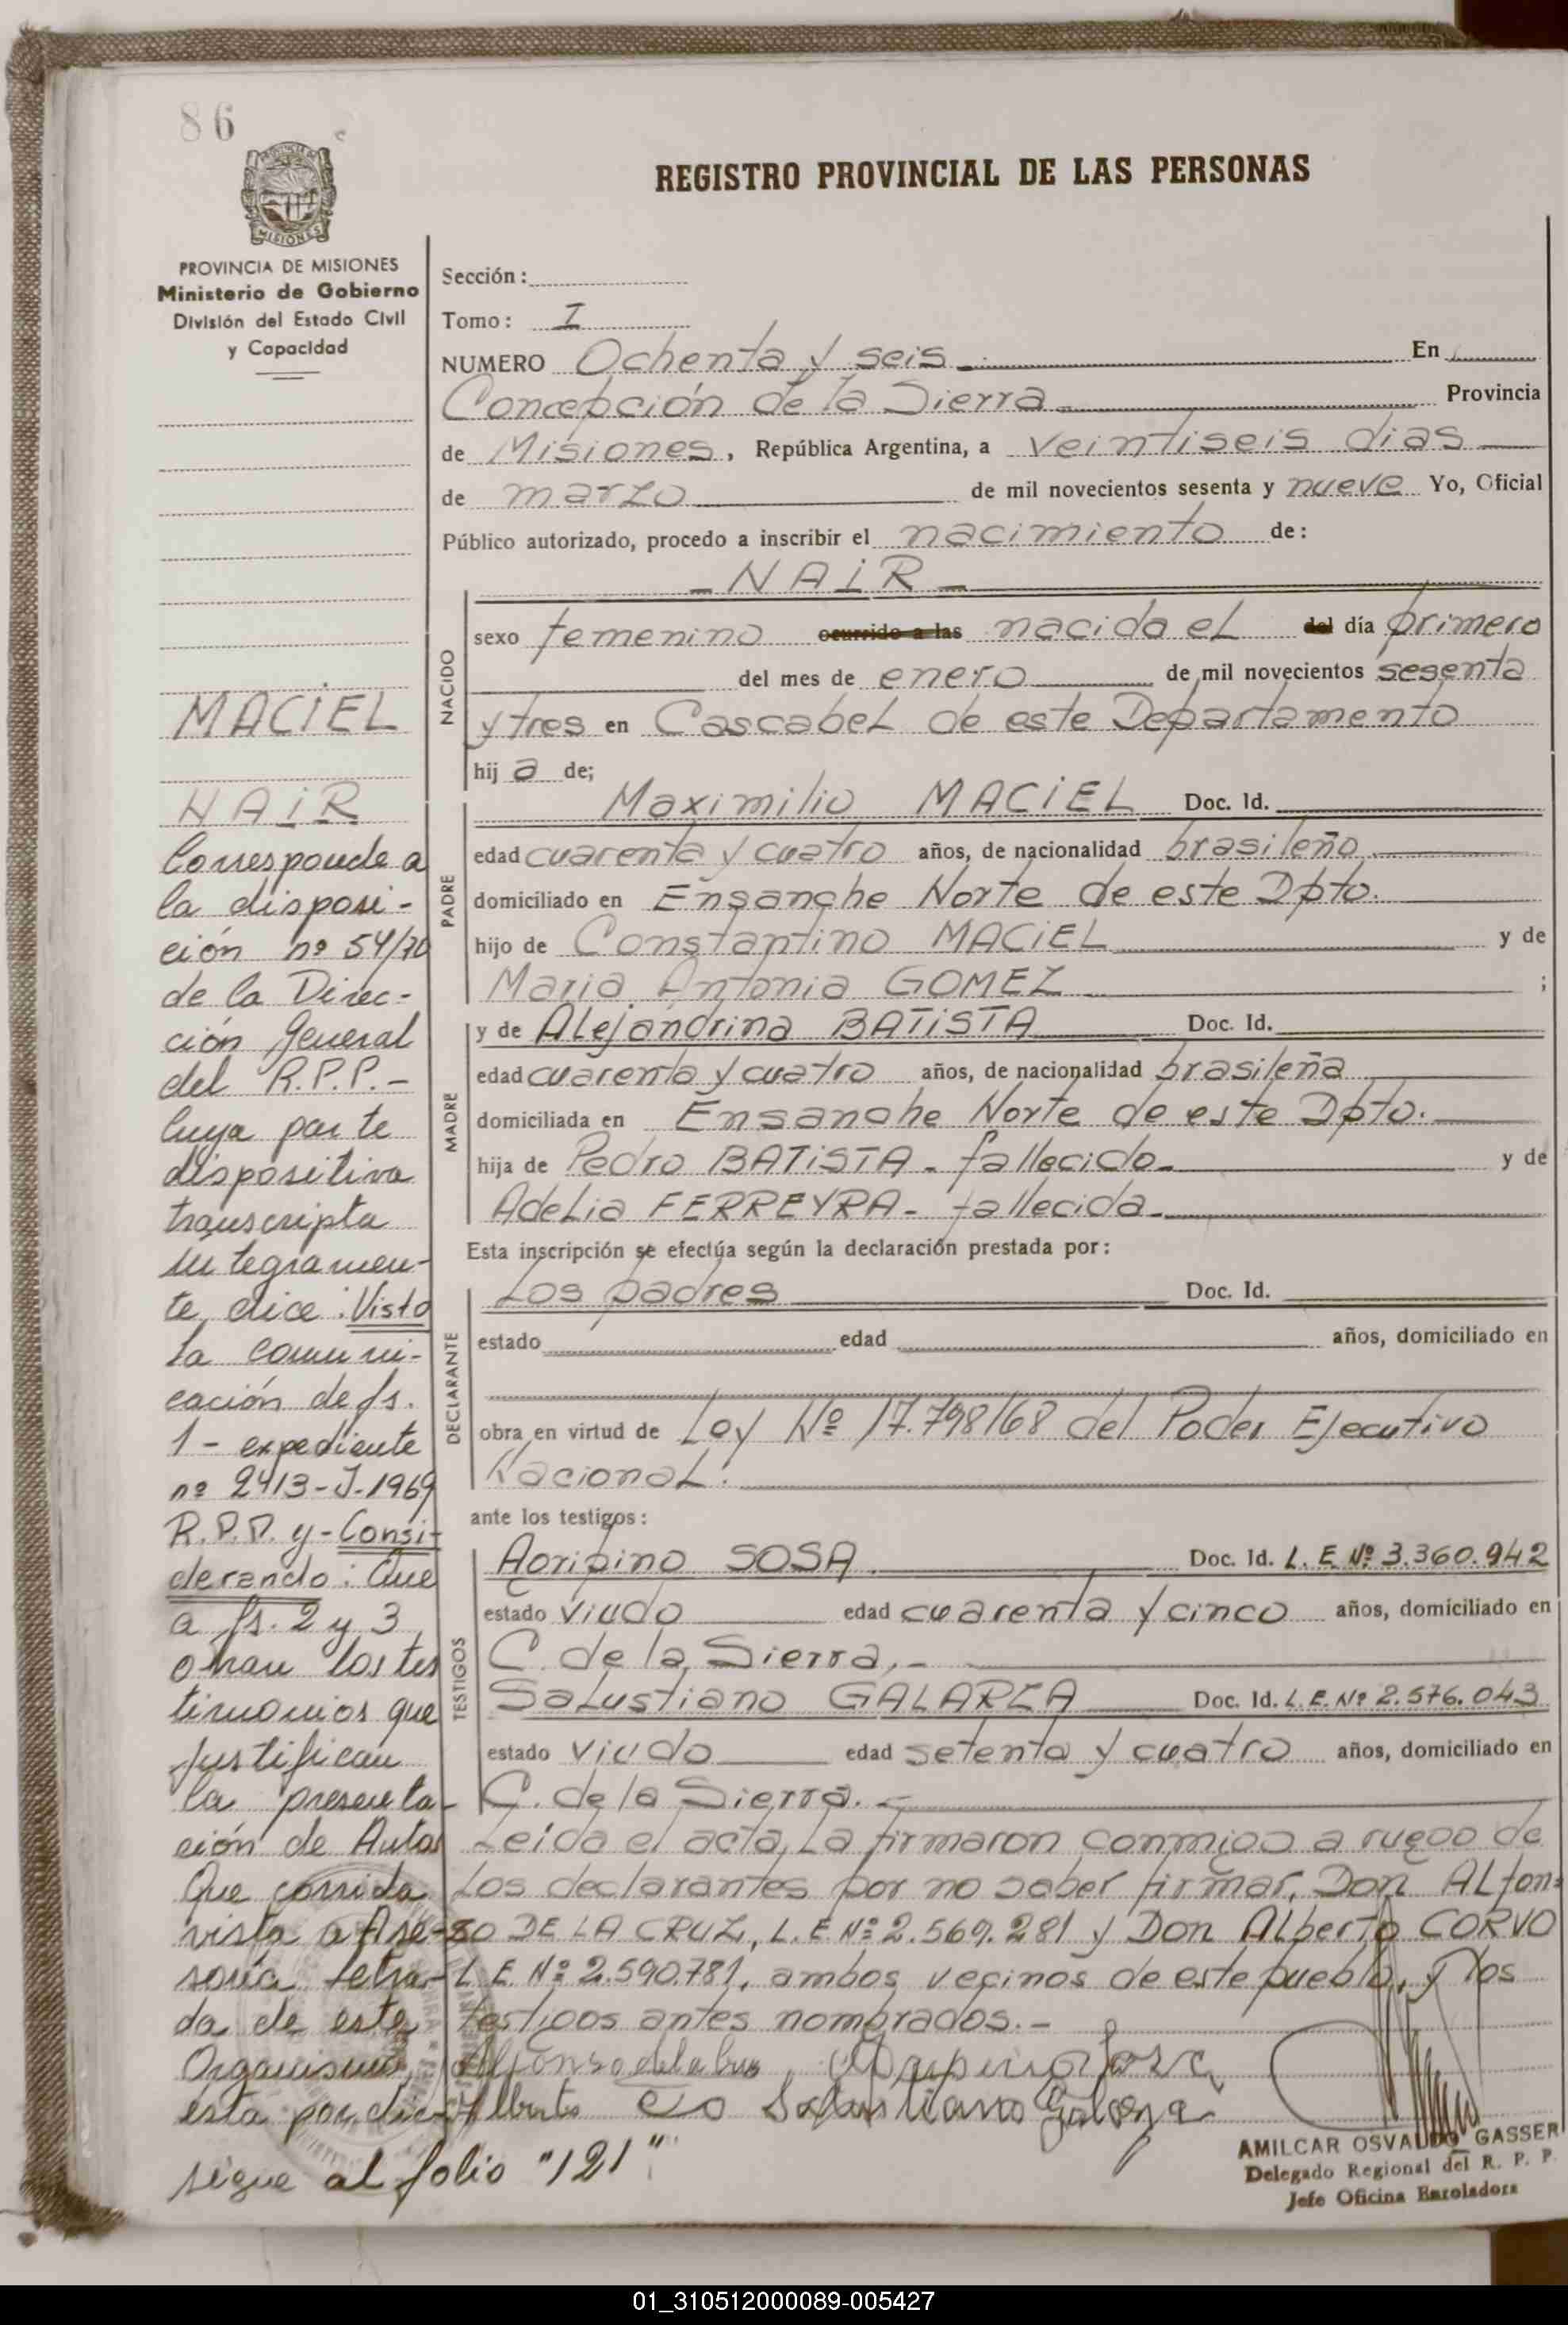 86
PROVINCIA DE MISIONES
Ministerio de Gobierno
División del Estado Civil
y Capacidad
MACIEL
NAIR
Corresponde a
la disposi-
ción nº 54/70
de la Direc-
ción General
del R.P.P.-
Cuya parte
dispositiva
transcripta
integramen-
te, dice: Visto
la comuni-
cación de fs.
1 - expediente
nº 2413-J-1969
R.P.P. y - Consi-
derando: Que
a fs. 2 y 3
obran los tes
timonios que
justifican
la presenta-
ción de Autos
Que corrida
vista a Ase-
soría letra-
da de este
Organismo,
ésta por dic-
sigue al folio "121"
REGISTRO PROVINCIAL DE LAS PERSONAS
Sección:
Tomo: I
NUMERO Ochenta y seis.- En
Concepción de la Sierra Provincia
de Misiones, República Argentina, a veintiseis dias
de marzo de mil novecientos sesenta y nueve Yo, Oficial
Público autorizado, procedo a inscribir el nacimiento de:
- NAIR -
NACIDO
sexo femenino ocurrido a las nacida el del día primero
del mes de enero de mil novecientos sesenta
y tres en Cascabel de este Departamento
hij a de;
PADRE
Maximilio MACIEL Doc. Id.
edad cuarenta y cuatro años, de nacionalidad brasileño
domiciliado en Ensanche Norte de este Dpto.
hijo de Constantino MACIEL y de
Maria Antonia GOMEZ ;
MADRE
y de Alejandrina BATISTA Doc. Id.
edad cuarenta y cuatro años, de nacionalidad brasileña
domiciliada en Ensanche Norte de este Dpto.
hija de Pedro BATISTA - fallecido - y de
Adelia FERREYRA - fallecida -
Esta inscripción se efectúa según la declaración prestada por:
DECLARANTE
Los padres Doc. Id.
estado edad años, domiciliado en
obra en virtud de Ley Nº 17.798/68 del Poder Ejecutivo
Nacional.
ante los testigos:
TESTIGOS
Agripino SOSA Doc. Id. L.E. Nº 3.360.942
estado viudo edad cuarenta y cinco años, domiciliado en
C. de la Sierra.-
Salustiano GALARZA Doc. Id. L.E. Nº 2.576.043
estado viudo edad setenta y cuatro años, domiciliado en
C. de la Sierra.-
Leída el acta, la firmaron conmigo a ruego de
los declarantes por no saber firmar, Don Alfon=
so DE LA CRUZ, L.E. Nº 2.569.281 y Don Alberto CORVO
L.E. Nº 2.590.781, ambos vecinos de este pueblo, y los
testigos antes nombrados.-
Alfonso de la Cruz Agripino Sosa
Alberto Salustiano Galarza
AMILCAR OSVALDO GASSER
Delegado Regional del R. P. P.
Jefe Oficina Enroladora
01_310512000089-005427